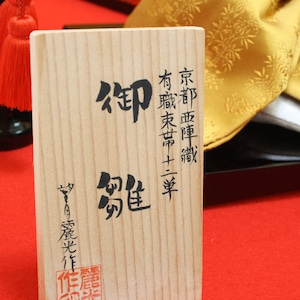 京都西陣織
有職束帯十二単
御雛
望月麗光作